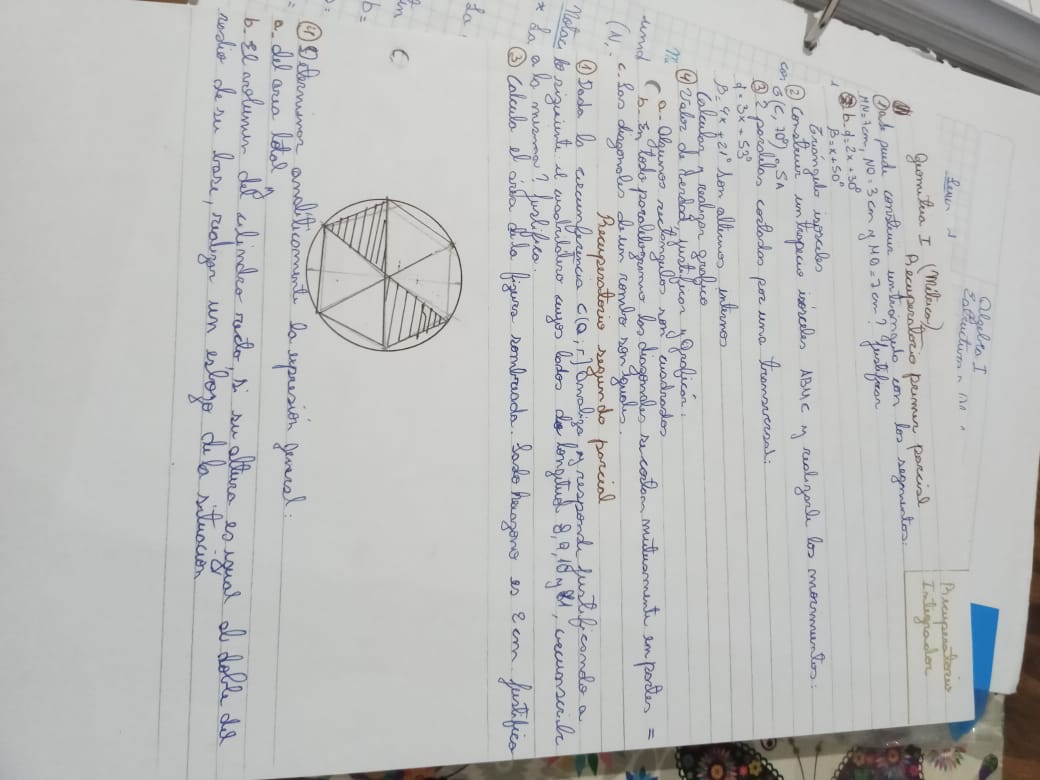 Algebra I
Recuperatorio
Integrador
Geometría I (Métrica)
Recuperatorio primer parcial
① Se puede construir un triángulo con los segmentos:
MN=7cm, NO=3cm y MO=7cm? Justificar
b. α=2x+30°
β=x+50°
Triángulo isósceles
② Construir un trapecio isósceles ABMC y realizarle los movimientos:
G(C, 70°) ° SA
③ 2 paralelas cortadas por una transversal:
α=3x+53°
β=4x+21° son alternos internos
Calcular y realizar gráfico
④ Valor de verdad, justificar y graficar.
a. Algunos rectángulos son cuadrados
b. En todo paralelogramo las diagonales se cortan mutuamente en partes =
c. Las diagonales de un rombo son iguales.
Recuperatorio segundo parcial
① Dada la circunferencia C(O;r] analiza y responde justificando a
lo siguiente el cuadrilátero cuyos lados de longitud 8, 9, 18 y 21, circunscribe
a la misma? Justifica.
③ Calcula el área de la figura sombreada. Lado hexágono es 2cm. Justifica
④ Determinar analíticamente la expresión general:
a. del area total
b. El volumen del cilindro recto, si su altura es igual al doble del
radio de su base, realizar un esbozo de la situación